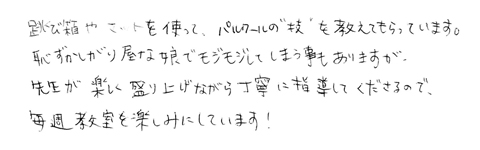 跳び箱やマットを使って、パルクールの"技"を教えてもらっています。
恥ずかしがり屋な娘でモジモジしてしまう事もありますが、
先生が楽しく盛り上げながら丁寧に指導してくださるので、
毎週教室を楽しみにしています!